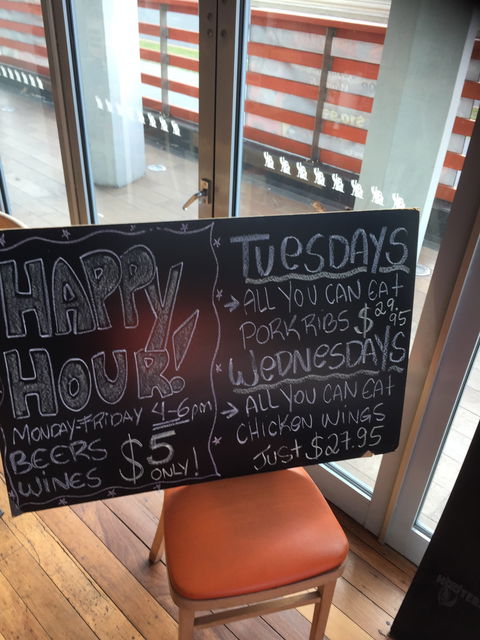 HAPPY
HOUR!
MONDAY-FRIDAY 4-6pm
BEERS
WINES
$5
ONLY!
TUESDAYS
→ ALL YOU CAN EAT
PORK RIBS $29.95
WEDNESDAYS
→ ALL YOU CAN EAT
CHICKEN WINGS
JUST $27.95